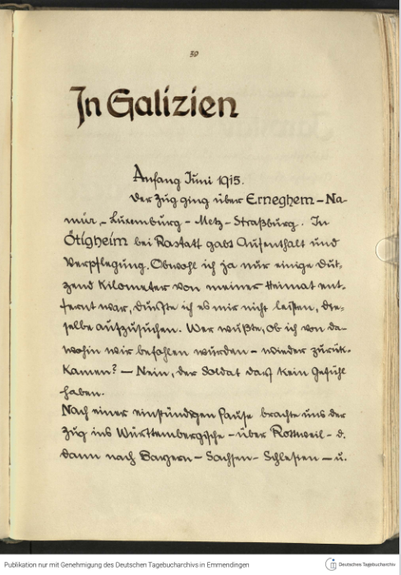 39
In Galizien
Anfang Juni 1915.
Der Zug ging über Erneghem - Na-
mür - Luxemburg - Metz - Straßburg. In
Ötigheim bei Rastatt gabs Aufenthalt und
Verpflegung. Obwohl ich ja nur einige Dut-
zend Kilometer von meiner Heimat ent-
fernt war, durfte ich es mir nicht leisten, die-
selbe aufzusuchen. Wer wußte, ob ich von da-
wohin wir befohlen wurden - wieder zurük-
kamen? — Nein, der Soldat darf kein Gefühl
haben.
Nach einer einstündigen Pause brachte uns der
Zug ins Württembergische - über Rottweil - d.
dann nach Bayern - Sachsen - Schlesien — u.
Publikation nur mit Genehmigung des Deutschen Tagebucharchivs in Emmendingen
Deutsches Tagebucharchiv